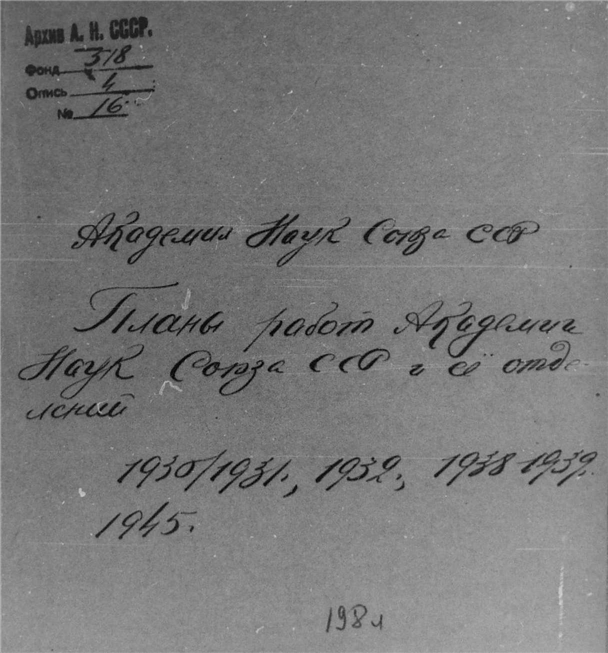 Архив А. Н. СССР.
Фонд 518
Опись 4
№ 16.
Академия Наук Союза ССР
Планы работ Академии
Наук Союза ССР и её отде-
лений
1930/1931., 1932., 1938-1939.
1945.
198 л